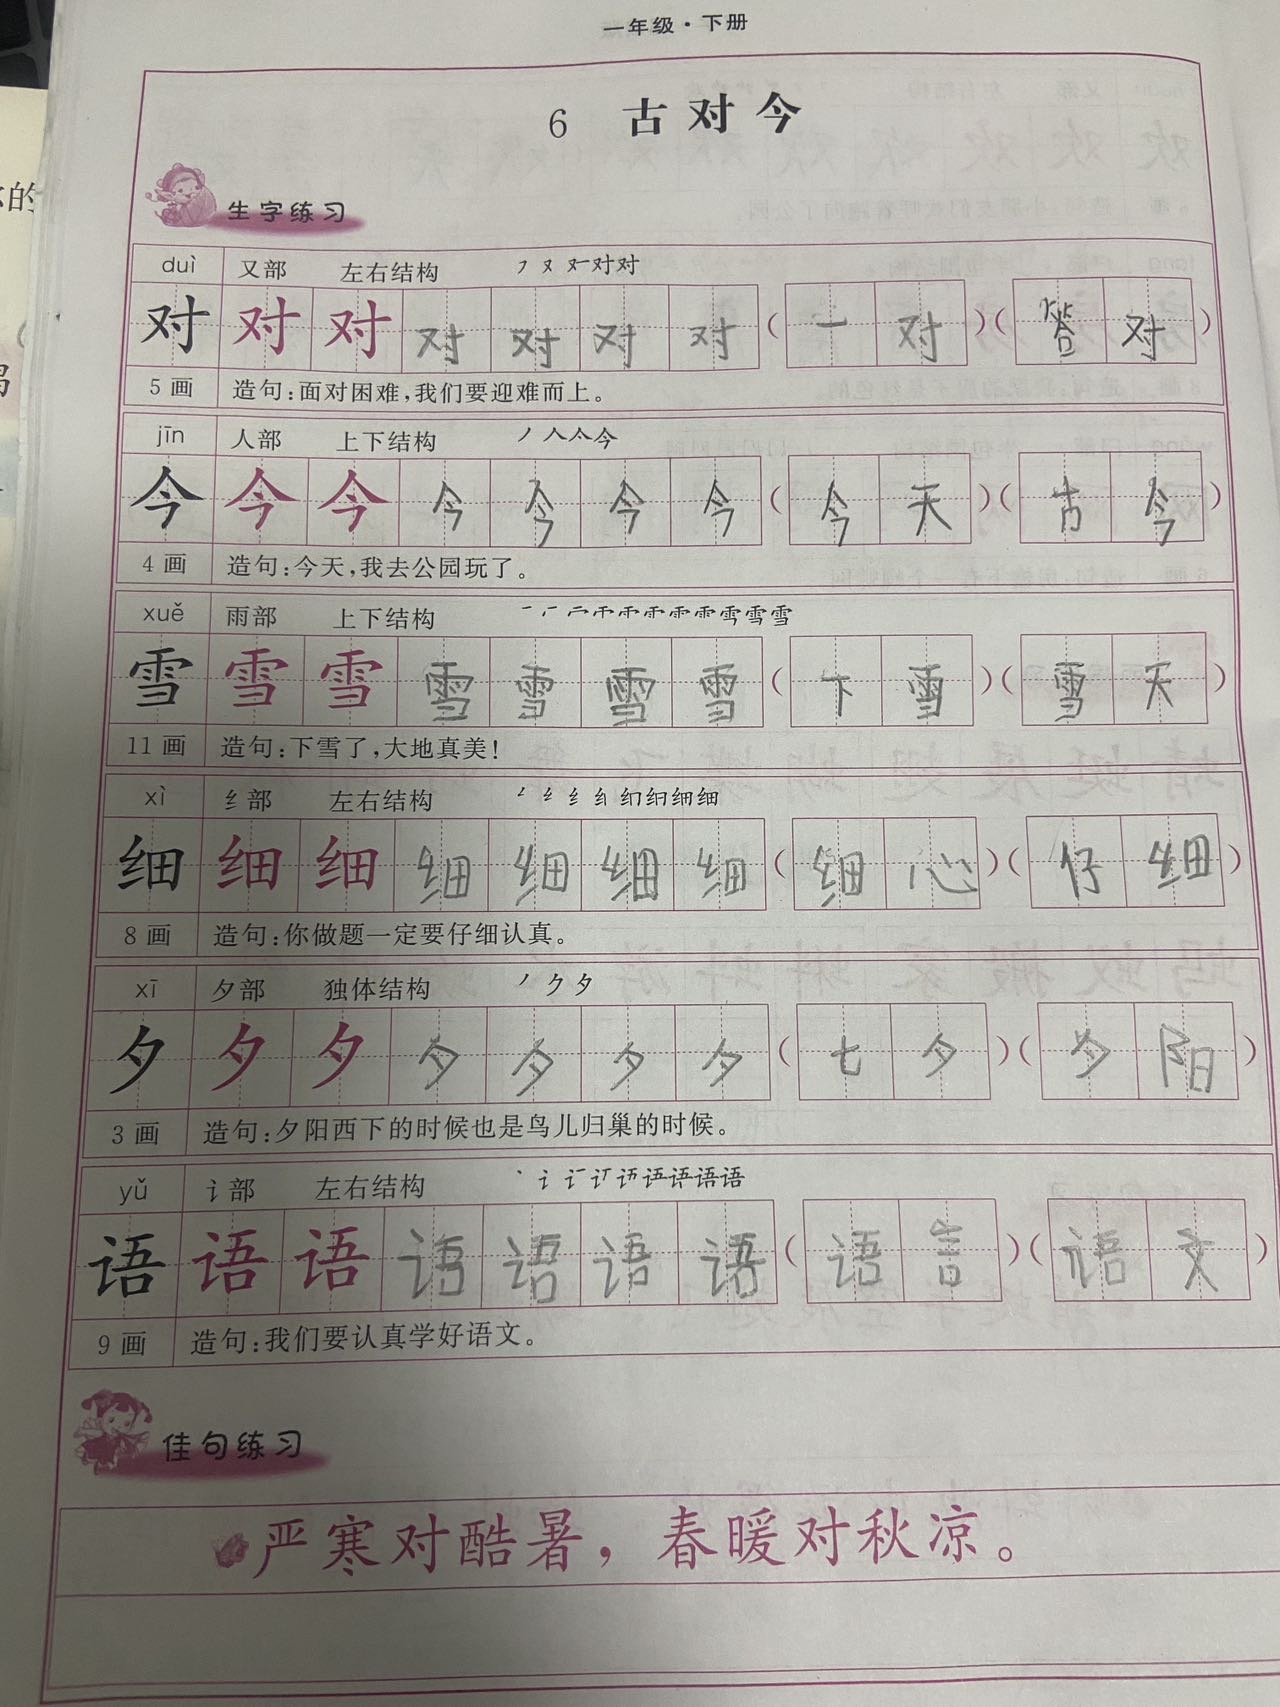 一年级·下册
6 古对今
生字练习
duì 又部 左右结构
对 对 对 对 对 对 对 (一对)(答对)
5画 造句:面对困难,我们要迎难而上。
jīn 人部 上下结构
今 今 今 今 今 今 今 (今天)(古今)
4画 造句:今天,我去公园玩了。
xuě 雨部 上下结构
雪 雪 雪 雪 雪 雪 雪 (下雪)(雪天)
11画 造句:下雪了,大地真美!
xì 纟部 左右结构
细 细 细 细 细 细 细 (细心)(仔细)
8画 造句:你做题一定要仔细认真。
xī 夕部 独体结构
夕 夕 夕 夕 夕 夕 夕 (七夕)(夕阳)
3画 造句:夕阳西下的时候也是鸟儿归巢的时候。
yǔ 讠部 左右结构
语 语 语 语 语 语 语 (语言)(语文)
9画 造句:我们要认真学好语文。
佳句练习
严寒对酷暑，春暖对秋凉。